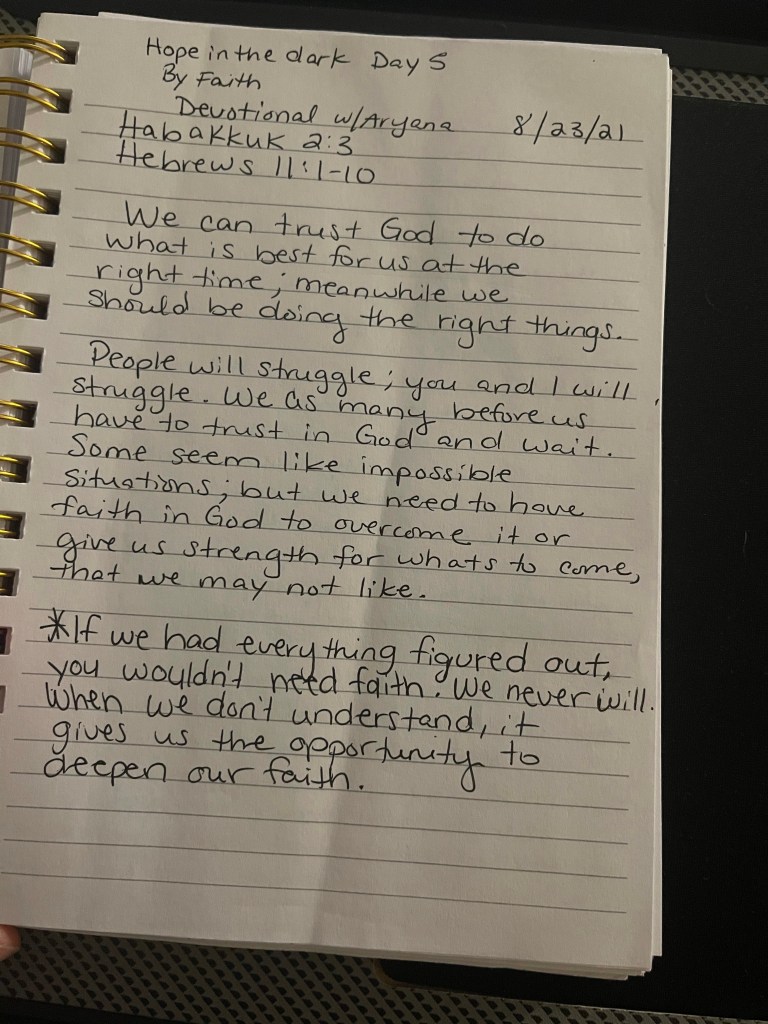 Hope in the dark Day 5
By Faith
Devotional w/Aryana 8/23/21
Habakkuk 2:3
Hebrews 11:1-10
We can trust God to do
what is best for us at the
right time; meanwhile we
should be doing the right things.
People will struggle; you and I will
struggle. We as many before us
have to trust in God and wait.
Some seem like impossible
situations; but we need to have
faith in God to overcome it or
give us strength for whats to come,
that we may not like.
*If we had everything figured out,
you wouldn't need faith. We never will.
When we don't understand, it
gives us the opportunity to
deepen our faith.